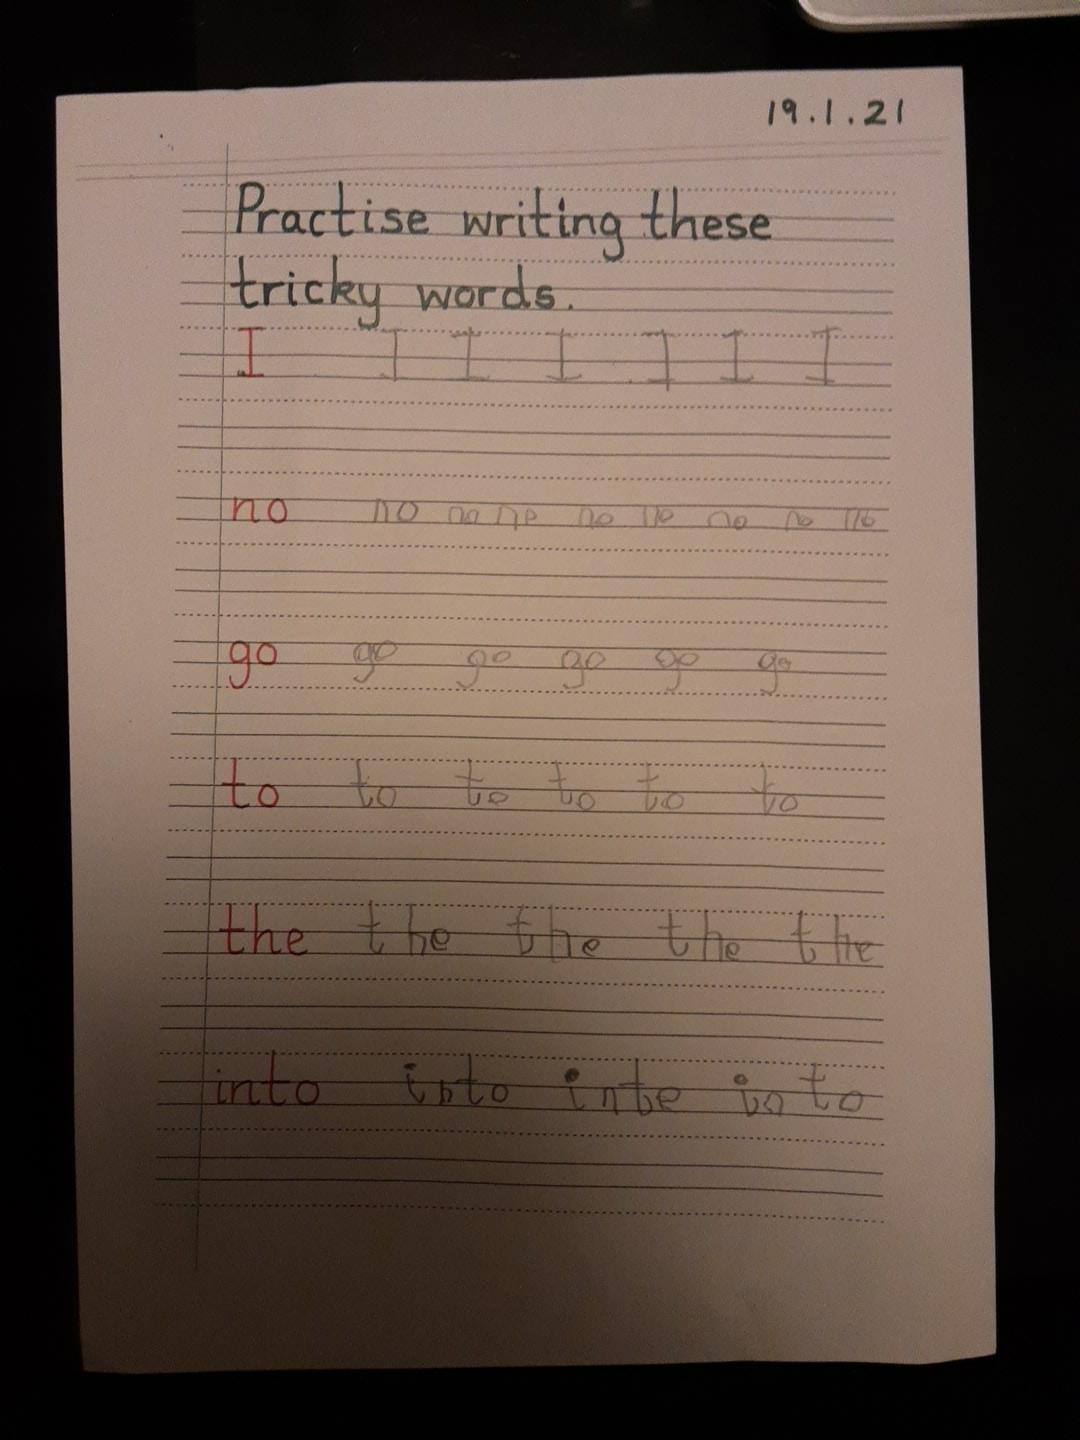 19.1.21
Practise writing these
tricky words.
I I I I I I I
no no no no no no no no no
go go go go go go
to to to to to to
the the the the the
into into inte into